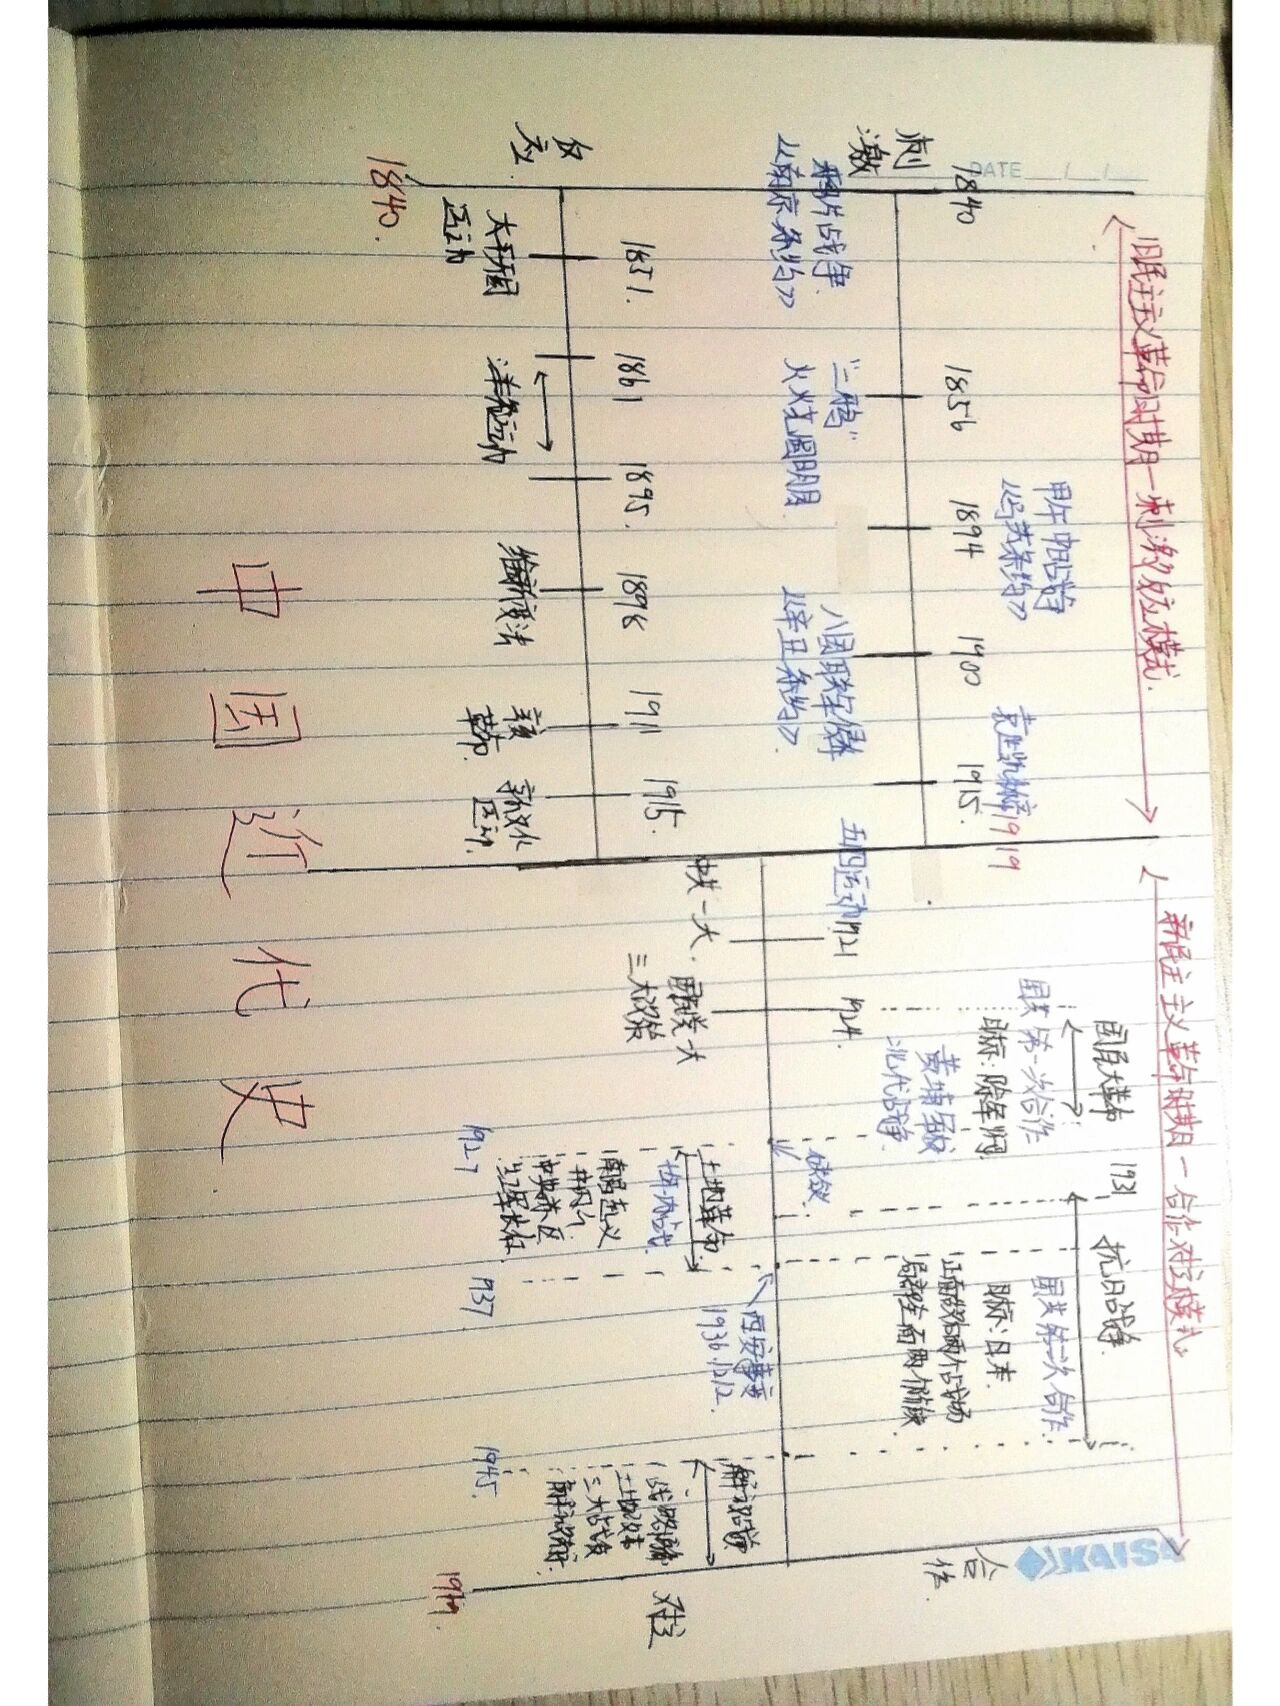 DATE / /
旧民主主义革命时期—刺激反应模式.
新民主主义革命时期—合作对立模式.
刺
激
1840
1856
1894
1900
1915.
1919
甲午中日战争
《马关条约》
袁世凯称帝
鸦片战争.
《南京条约》
"二鸦"
火烧圆明园
八国联军侵华
《辛丑条约》.
五四运动
反
应
1851.
1861
1895.
1898
1911
1915.
太平天国
运动
洋务运动
维新变法
辛亥
革命.
新文化
运动.
1840.
国民大革命
国共第一次合作
目标:除军阀.
黄埔军校
北伐战争
1931
抗日战争
国共第二次合作.
目标:日本.
正面敌后两个战场
局部全面两个阶段
合
作
1921
1924.
中共一大.
国民党一大
三大政策
1927
土地革命.
南昌起义
井冈山
中央苏区
红军长征.
1937
西安事变
1936.12.12.
1945.
解放战争
土地改革
三大战役
对立
1949.
中国近代史
KAISA